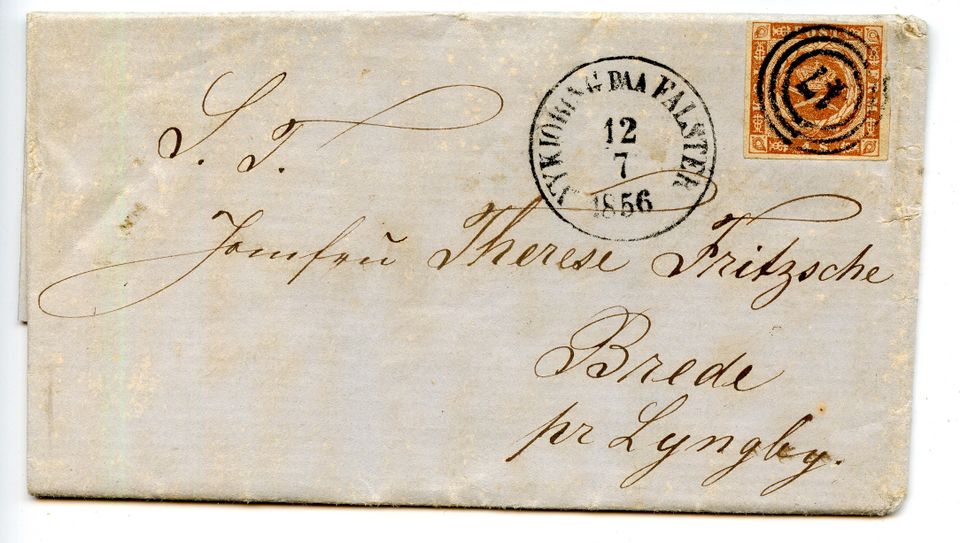 S. T.
NYKJÖBING PAA FALSTER
12
7
1856
Jomfru Therese Fritzsche
Brede
pr Lyngby.